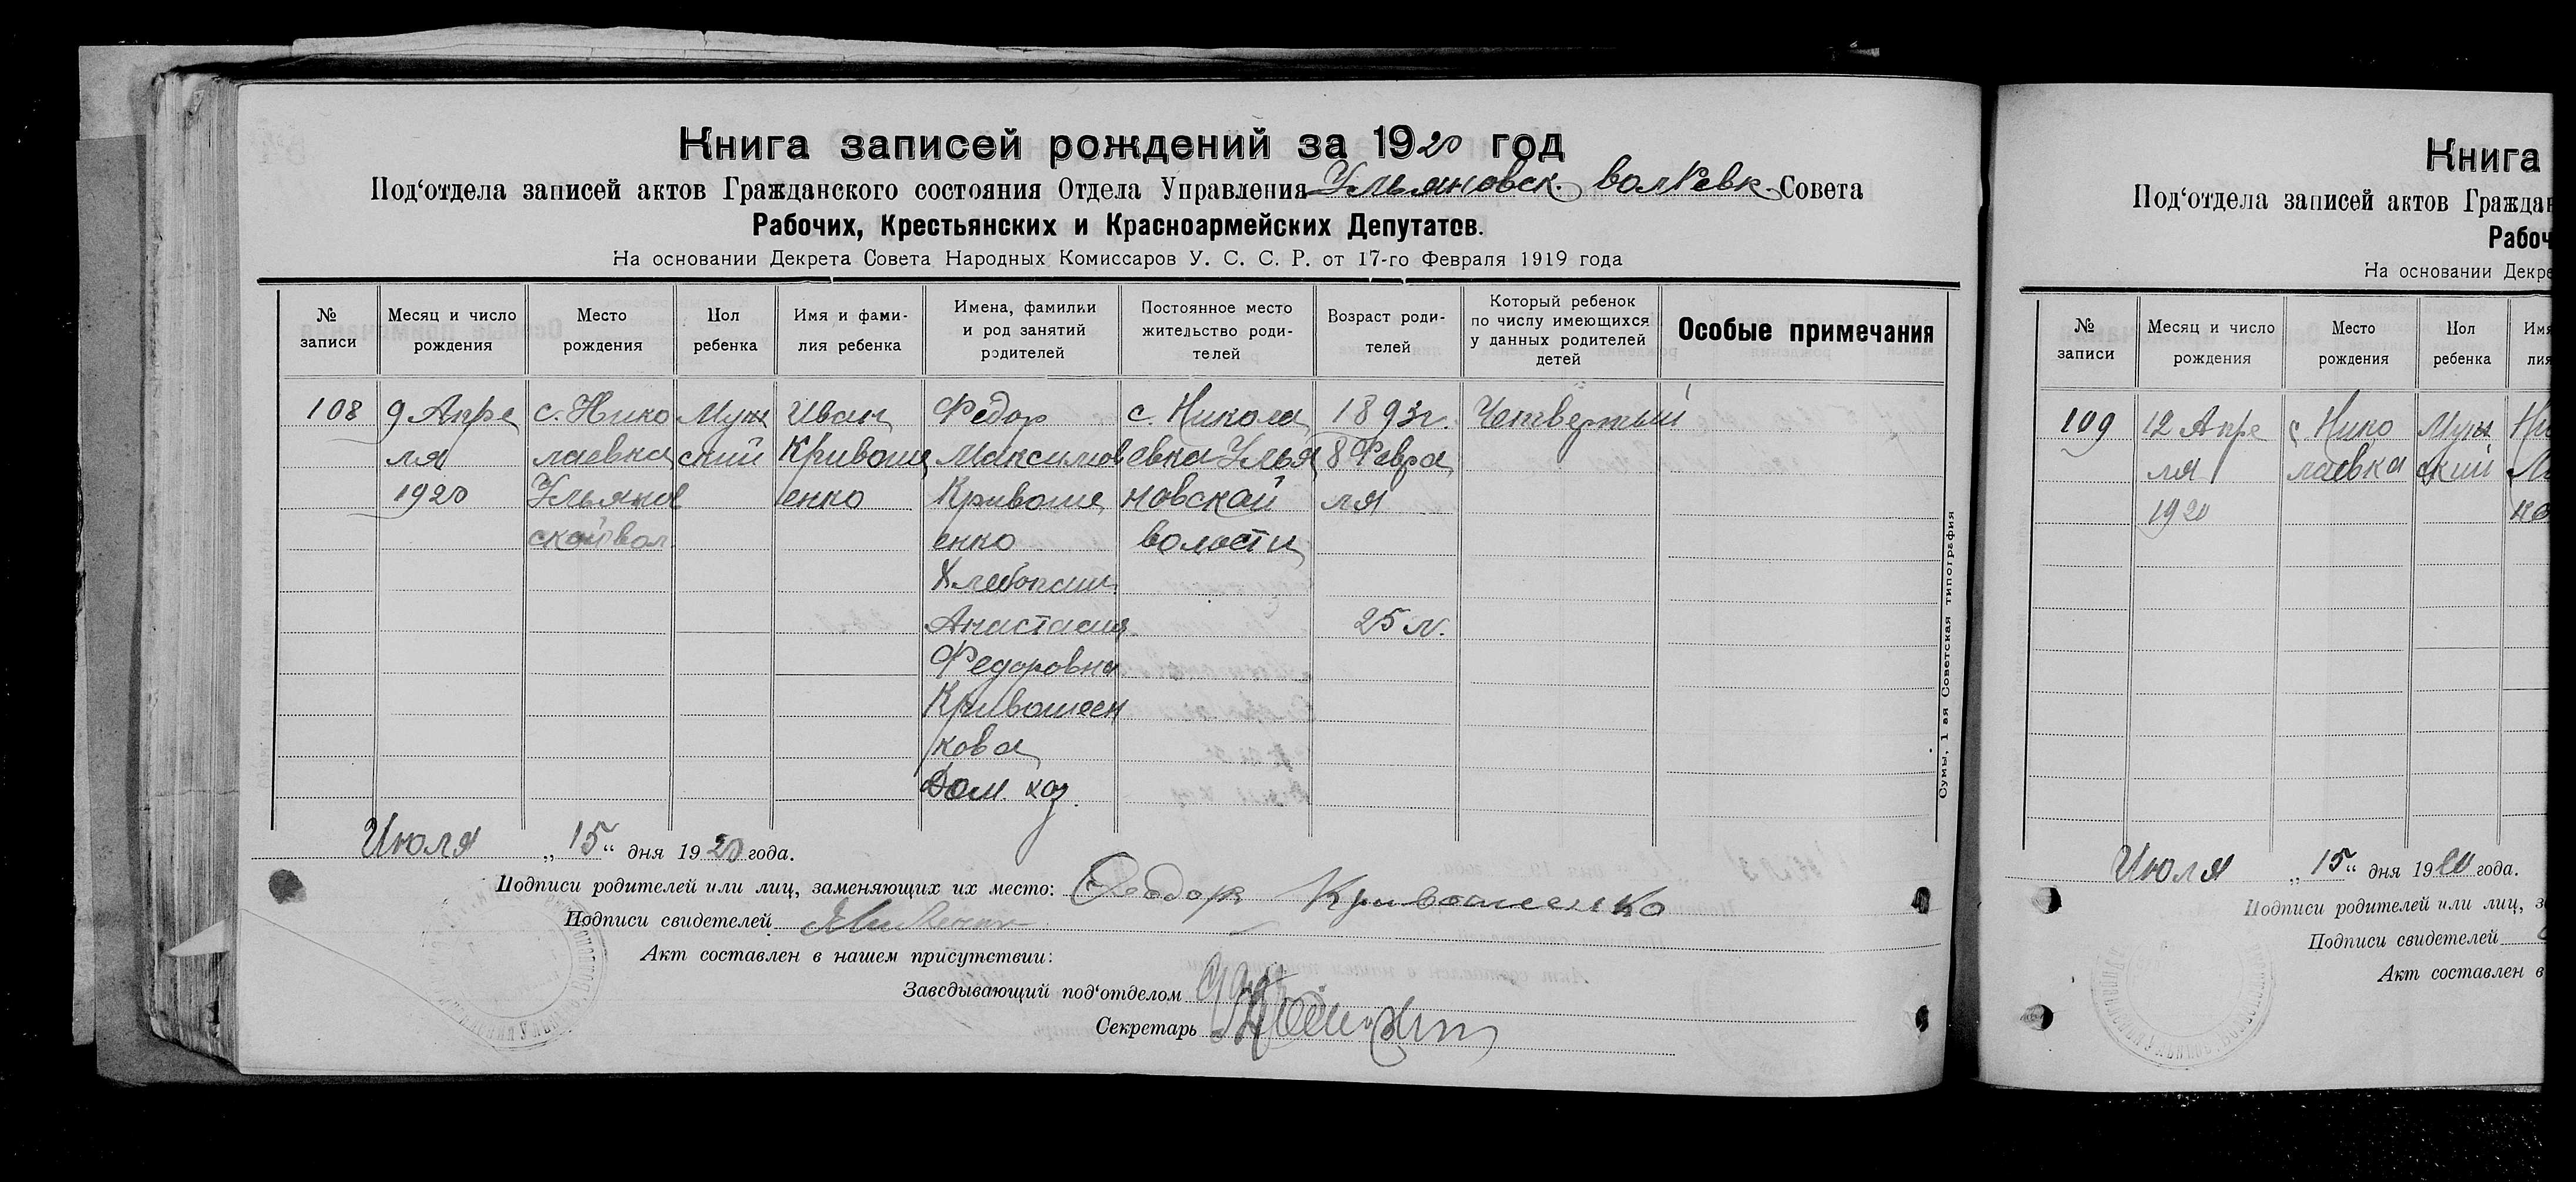 Книга записей рождений за 1920 год
Под‘отдела записей актов Гражданского состояния Отдела Управления Ульяновск. волРевк Совета
Рабочих, Крестьянских и Красноармейских Депутатов.
На основании Декрета Совета Народных Комиссаров У. С. С. Р. от 17-го Февраля 1919 года
№ записи
Месяц и число рождения
Место рождения
Пол ребенка
Имя и фами-
лия ребенка
Имена, фамилии
и род занятий
родителей
Постоянное место
жительство роди-
телей
Возраст роди-
телей
Который ребенок
по числу имеющихся
у данных родителей
детей
Особые примечания
108
9 Апре
ля
1920
с. Нико
лаевка
Ульянов
ской вол
Муж
ский
Иван
Кривоше
енко
Федор
Максимов
Кривоше
енко
Хлебопаш.
Анастасия
Федоровна
Кривошеен
кова
Дом. хоз.
с. Никола
евка Улья
новской
волости
1893г.
8 Февра
ля
25 л.
Четвертый
Июля „15“ дня 1920 года.
Подписи родителей или лиц, заменяющих их место: Феодор Кривошеенко
Подписи свидетелей
Акт составлен в нашем присутствии:
Заведывающий под‘отделом
Секретарь
Сумы, 1-ая Советская типография
Книга
Под‘отдела записей актов Граждан
Рабоч
На основании Декре
№ записи
Месяц и число рождения
Место рождения
Пол ребенка
Имя
лия
109
12 Апре
ля
1920
с Нико
лаевка
Муж
ский
Июля „15“ дня 1920 года.
Подписи родителей или лиц, з
Подписи свидетелей
Акт составлен в